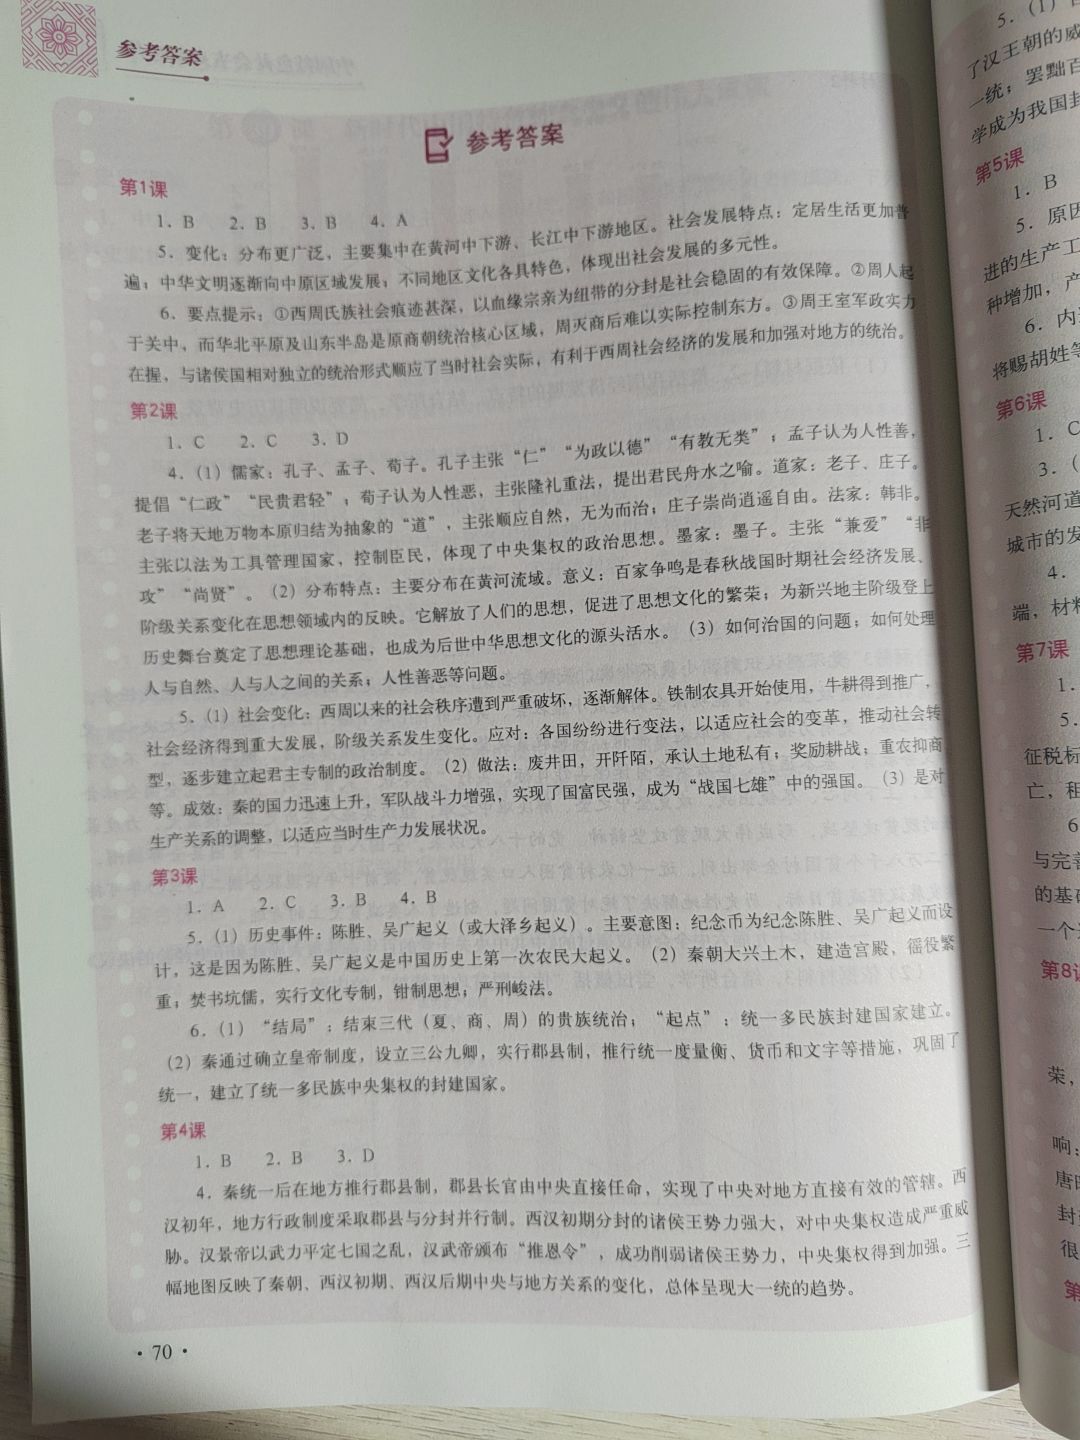 参考答案
参考答案
第1课
1．B 2．B 3．B 4．A
5．变化：分布更广泛，主要集中在黄河中下游、长江中下游地区。社会发展特点：定居生活更加普
遍；中华文明逐渐向中原区域发展；不同地区文化各具特色，体现出社会发展的多元性。
6．要点提示：①西周氏族社会痕迹甚深，以血缘宗亲为纽带的分封是社会稳固的有效保障。②周人起
于关中，而华北平原及山东半岛是原商朝统治核心区域，周灭商后难以实际控制东方。③周王室军政实力
在握，与诸侯国相对独立的统治形式顺应了当时社会实际，有利于西周社会经济的发展和加强对地方的统治。
第2课
1．C 2．C 3．D
4．（1）儒家：孔子、孟子、荀子。孔子主张“仁”“为政以德”“有教无类”；孟子认为人性善，
提倡“仁政”“民贵君轻”；荀子认为人性恶，主张隆礼重法，提出君民舟水之喻。道家：老子、庄子。
老子将天地万物本原归结为抽象的“道”，主张顺应自然，无为而治；庄子崇尚逍遥自由。法家：韩非。
主张以法为工具管理国家，控制臣民，体现了中央集权的政治思想。墨家：墨子。主张“兼爱”“非
攻”“尚贤”。（2）分布特点：主要分布在黄河流域。意义：百家争鸣是春秋战国时期社会经济发展、
阶级关系变化在思想领域内的反映。它解放了人们的思想，促进了思想文化的繁荣；为新兴地主阶级登上
历史舞台奠定了思想理论基础，也成为后世中华思想文化的源头活水。（3）如何治国的问题；如何处理
人与自然、人与人之间的关系；人性善恶等问题。
5．（1）社会变化：西周以来的社会秩序遭到严重破坏，逐渐解体。铁制农具开始使用，牛耕得到推广，
社会经济得到重大发展，阶级关系发生变化。应对：各国纷纷进行变法，以适应社会的变革，推动社会转
型，逐步建立起君主专制的政治制度。（2）做法：废井田，开阡陌，承认土地私有；奖励耕战；重农抑商
等。成效：秦的国力迅速上升，军队战斗力增强，实现了国富民强，成为“战国七雄”中的强国。（3）是对
生产关系的调整，以适应当时生产力发展状况。
第3课
1．A 2．C 3．B 4．B
5．（1）历史事件：陈胜、吴广起义（或大泽乡起义）。主要意图：纪念币为纪念陈胜、吴广起义而设
计，这是因为陈胜、吴广起义是中国历史上第一次农民大起义。（2）秦朝大兴土木，建造宫殿，徭役繁
重；焚书坑儒，实行文化专制，钳制思想；严刑峻法。
6．（1）“结局”：结束三代（夏、商、周）的贵族统治；“起点”：统一多民族封建国家建立。
（2）秦通过确立皇帝制度，设立三公九卿，实行郡县制，推行统一度量衡、货币和文字等措施，巩固了
统一，建立了统一多民族中央集权的封建国家。
第4课
1．B 2．B 3．D
4．秦统一后在地方推行郡县制，郡县长官由中央直接任命，实现了中央对地方直接有效的管辖。西
汉初年，地方行政制度采取郡县与分封并行制。西汉初期分封的诸侯王势力强大，对中央集权造成严重威
胁。汉景帝以武力平定七国之乱，汉武帝颁布“推恩令”，成功削弱诸侯王势力，中央集权得到加强。三
幅地图反映了秦朝、西汉初期、西汉后期中央与地方关系的变化，总体呈现大一统的趋势。
·70·
5．（1）
了汉王朝的威
一统；罢黜百
学成为我国封
第5课
1．B
5．原因
进的生产工
种增加，产
6．内
将赐胡姓等
第6课
1．C
3．（
天然河道
城市的发
4．
端，材料
第7课
1．
5．
征税标
亡，租
6
与完善
的基础
一个
第8课
荣，
响：
唐
封
很
第